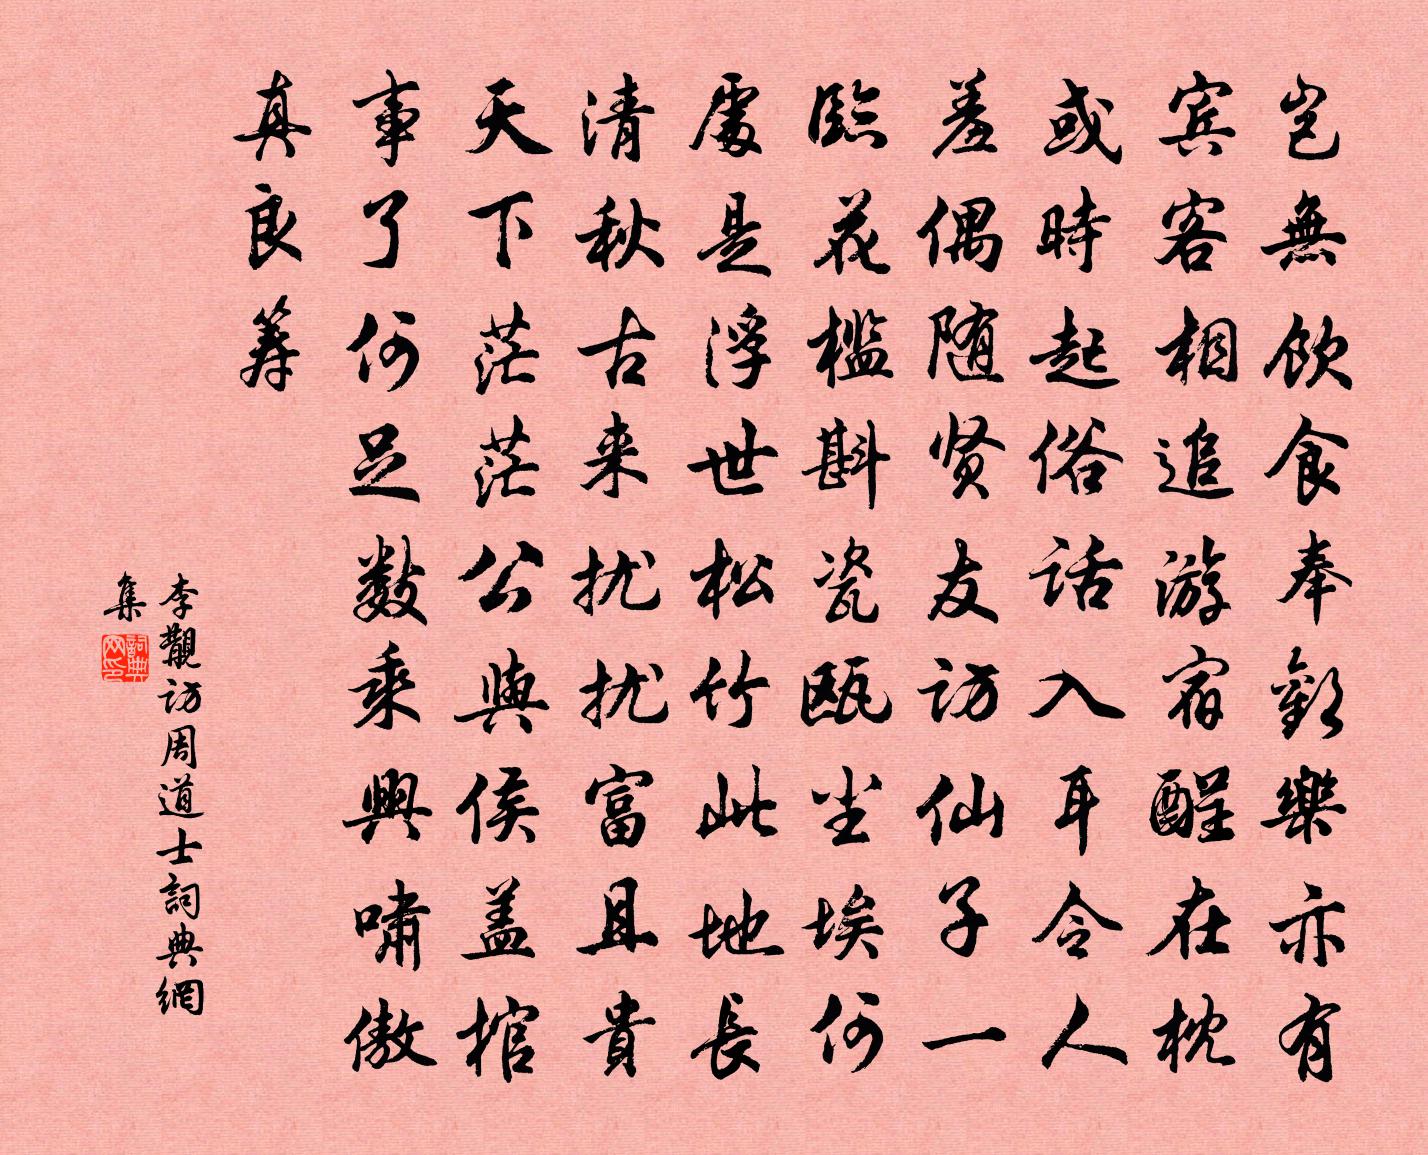 豈無飲食奉歡樂亦有
賓客相追游宿醒在枕
或時起俗話入耳令人
羞偶随贤友訪仙子一
臨花檻斟瓷甌尘埃何
處是浮世松竹此地長
清秋古来扰扰富且貴
天下茫茫公與侯盖棺
事了何足數乘興嘯傲
真良筹
李觏訪周道士詞典網
集